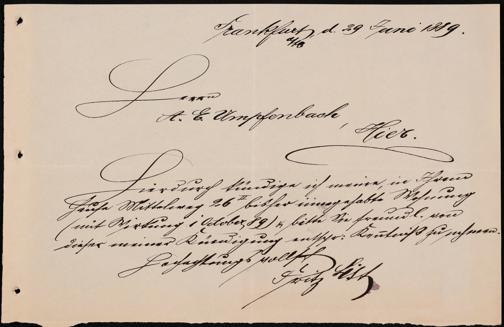 Frankfurt a/M, d. 29 Juni 1889.
Herrn
A. E. Umpfenbach,
Hier.
Hierdurch kündige ich meine, in Ihrem
Hause Mittelweg 26 II bisher innegehabte Wohnung
(mit Wirkung 1 October 89) & bitte Sie freundl. von
dieser meiner Kündigung entspr. Kenntniß zu nehmen.
Hochachtungsvollst
Fritz